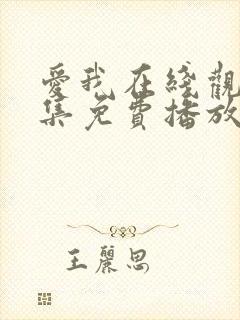 愛我在綫觀
集免費播放
王麗思